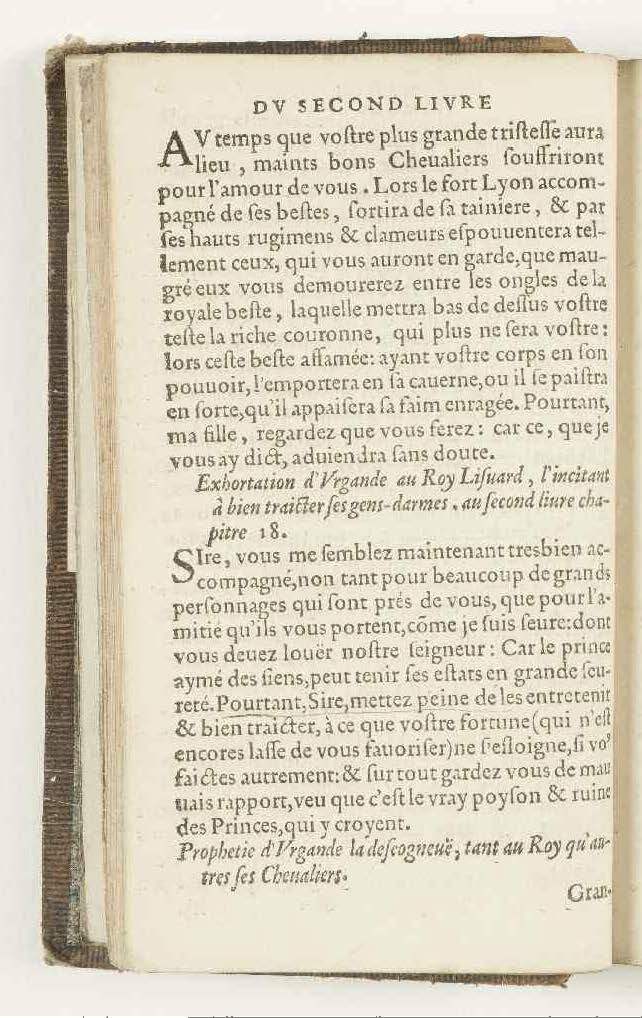 DV SECOND LIVRE
AV temps que voſtre plus grande triſteſſe aura
lieu , maints bons Cheualiers ſouffriront
pour l'amour de vous . Lors le fort Lyon accom-
pagné de ſes beſtes, ſortira de ſa tainiere, & par
ſes hauts rugimens & clameurs eſpouuentera tel-
lement ceux, qui vous auront en garde, que mau-
gré eux vous demourerez entre les ongles de la
royale beſte, laquelle mettra bas de deſſus voſtre
teſte la riche couronne, qui plus ne ſera voſtre:
lors ceſte beſte affamée: ayant voſtre corps en ſon
pouuoir, l'emportera en ſa cauerne, ou il ſe paiſtra
en ſorte, qu'il appaiſera ſa faim enragée. Pourtant,
ma fille, regardez que vous ferez: car ce, que je
vous ay dict, aduiendra ſans doute.
Exhortation d'Vrgande au Roy Liſuard, l'incitant
à bien traicter ſes gens-darmes . au ſecond liure cha-
pitre 18.
SIre, vous me ſemblez maintenant tresbien ac-
compagné, non tant pour beaucoup de grands
perſonnages qui ſont prés de vous, que pour l'a-
mitié qu'ils vous portent, cõme je ſuis ſeure: dont
vous deuez louër noſtre ſeigneur: Car le prince
aymé des ſiens, peut tenir ſes eſtats en grande ſeu-
reté. Pourtant, Sire, mettez peine de les entretenir
& bien traicter, à ce que voſtre fortune (qui n'eſt
encores laſſe de vous fauoriſer) ne ſ'eſloigne, ſi vo'
faictes autrement: & ſur tout gardez vous de mau
uais rapport, veu que c'eſt le vray poyſon & ruine
des Princes, qui y croyent.
Prophetie d'Vrgande la deſcogneuë, tant au Roy qu'au-
tres ſes Cheualiers.
Gran-